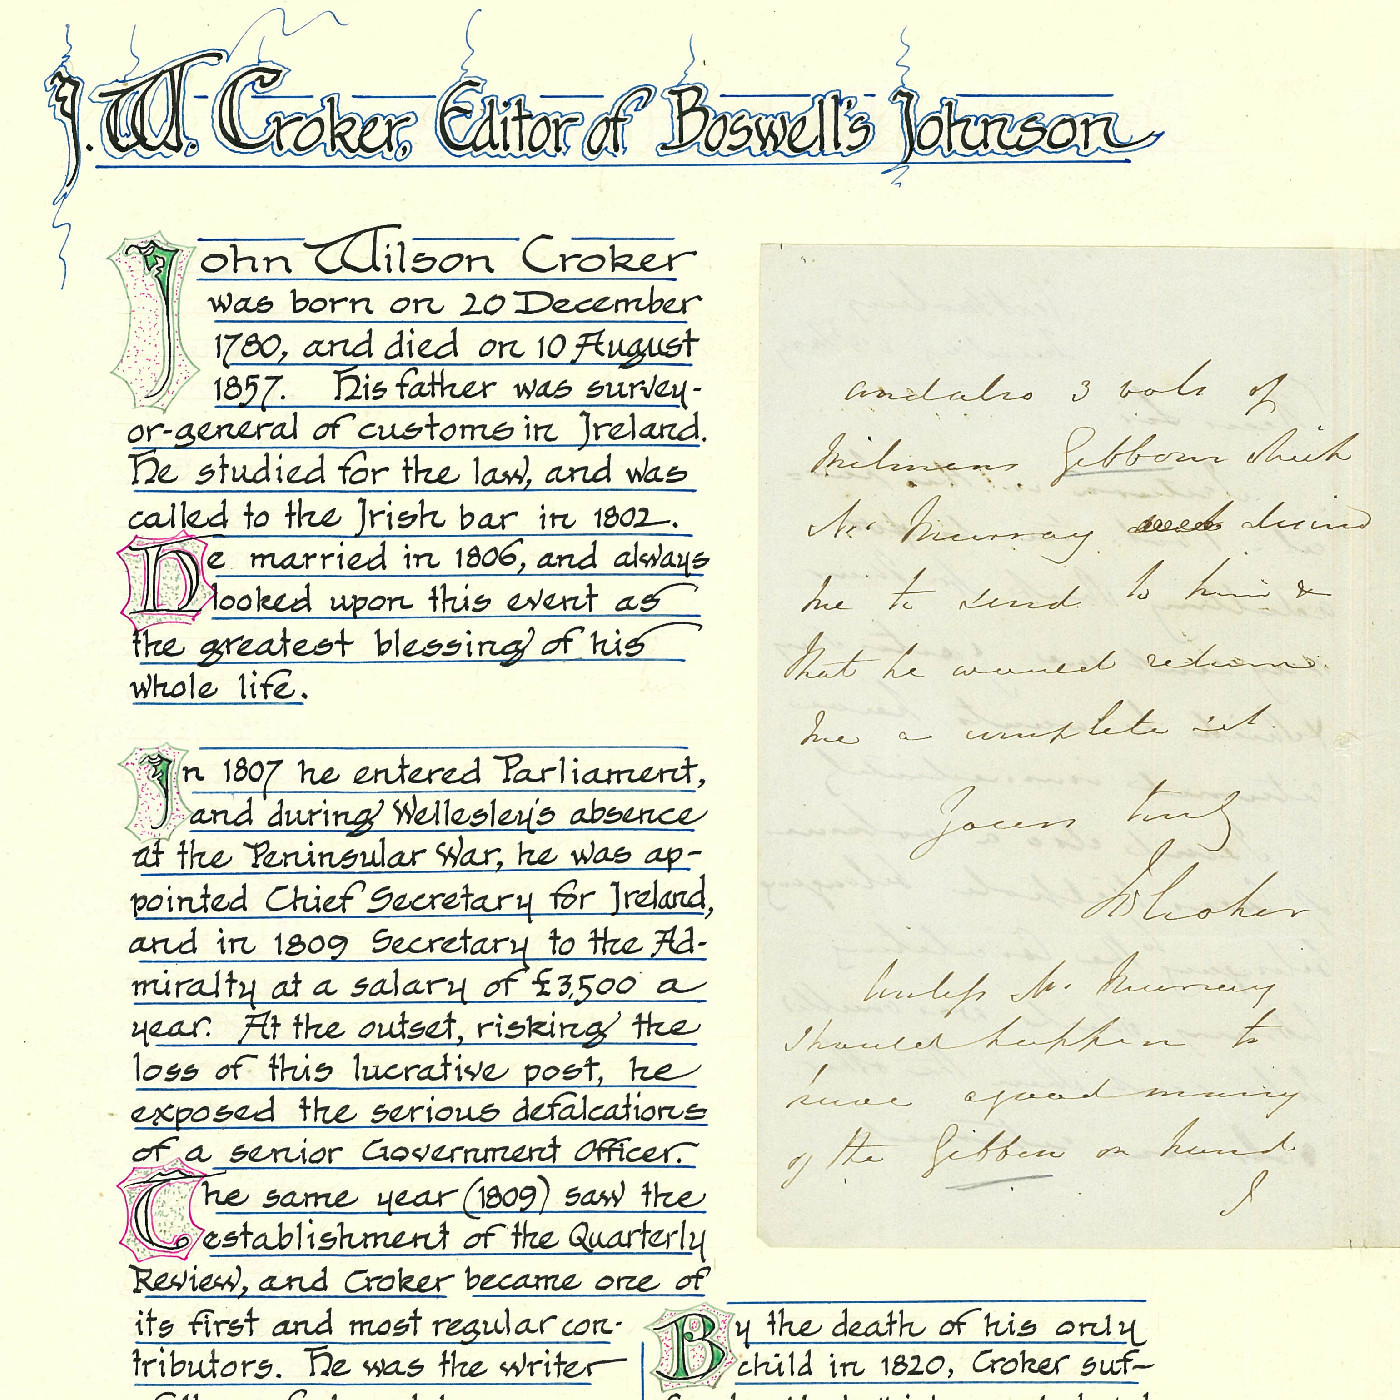 J. W. Croker, Editor of Boswell's Johnson
John Wilson Croker
was born on 20 December
1780, and died on 10 August
1857. His father was survey-
or-general of customs in Ireland.
He studied for the law, and was
called to the Irish bar in 1802.
He married in 1806, and always
looked upon this event as
the greatest blessing of his
whole life.
In 1807 he entered Parliament,
and during Wellesley's absence
at the Peninsular War, he was ap-
pointed Chief Secretary for Ireland,
and in 1809 Secretary to the Ad-
miralty at a salary of £3,500 a
year. At the outset, risking the
loss of this lucrative post, he
exposed the serious defalcations
of a senior Government Officer.
The same year (1809) saw the
establishment of the Quarterly
Review, and Croker became one of
its first and most regular con-
tributors. He was the writer
and also 3 vols of
Milmans Gibbon which
Mr Murray desired
me to send to him &
that he would return
me a complete set.
Yours truly
JWCroker
unless Mr Murray
should happen to
have a good many
of the Gibbon on hand.
By the death of his only
child in 1820, Croker suf-